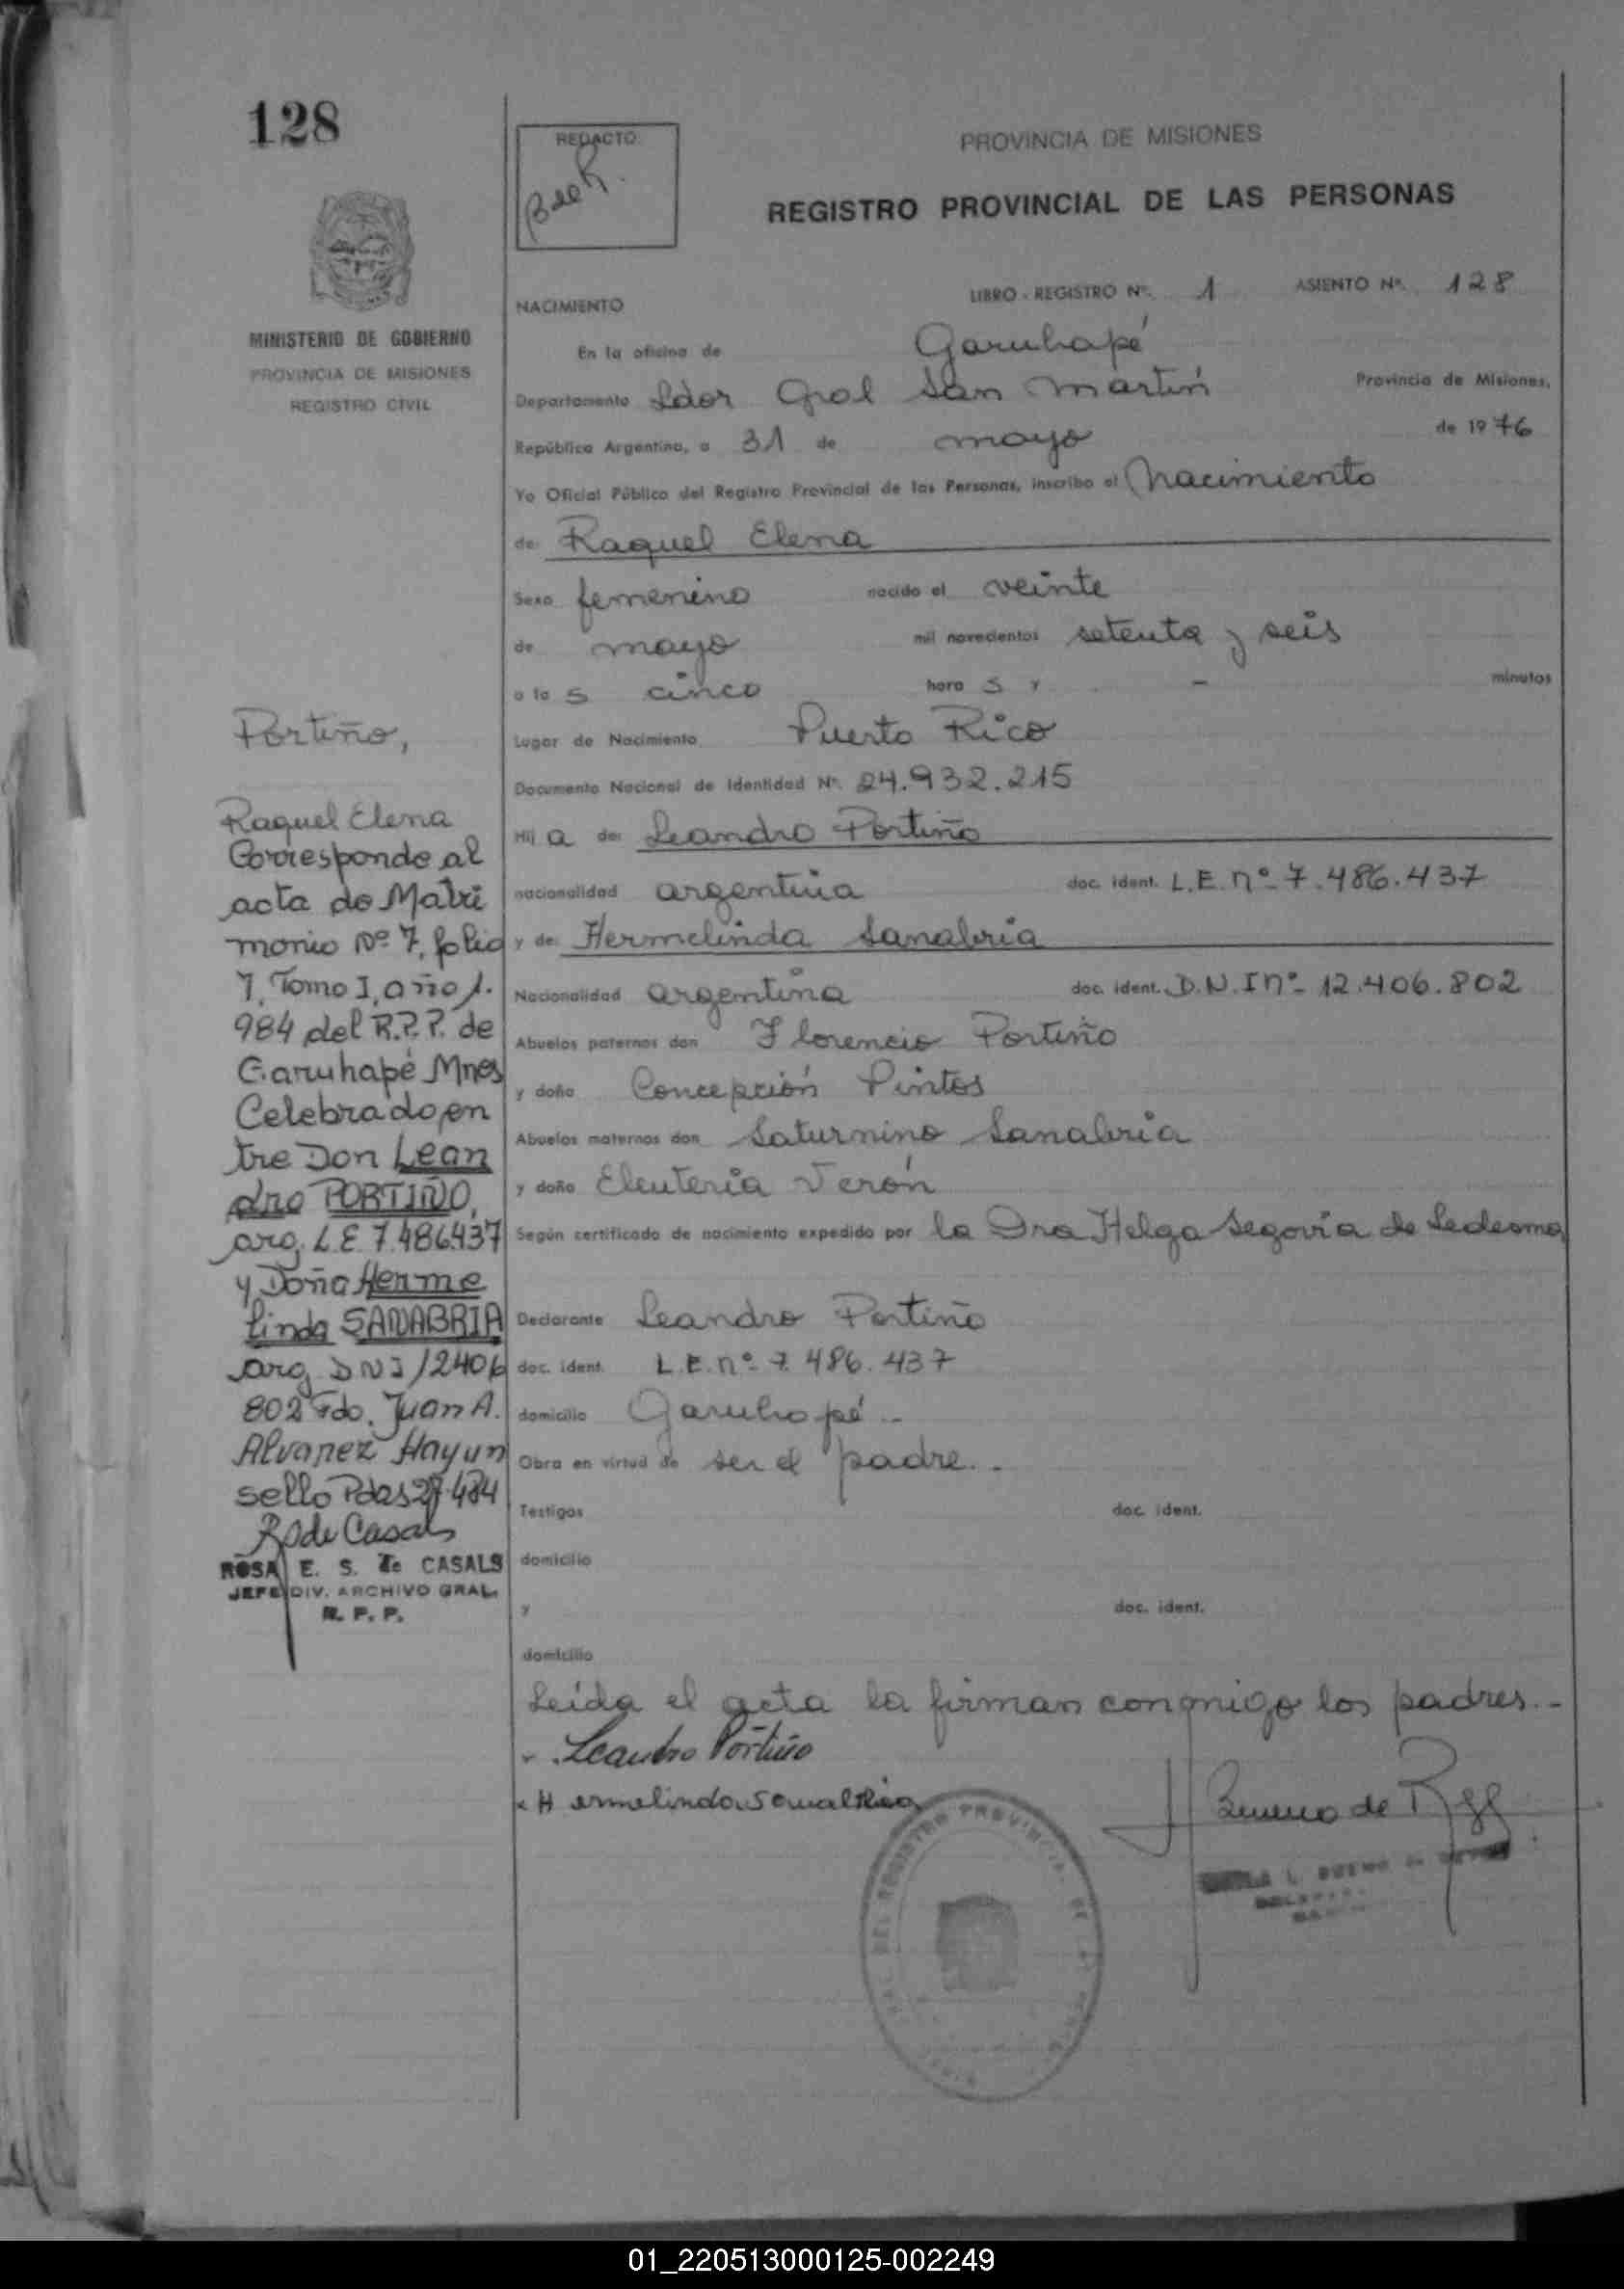 128
MINISTERIO DE GOBIERNO
PROVINCIA DE MISIONES
REGISTRO CIVIL
Portiño,
Raquel Elena
Corresponde al
acta de Matri
monio Nº 7, folio
7, Tomo I, año 1.
984 del R.P.P. de
Garuhapé Mnes
Celebrado en
tre Don Lean
dro PORTIÑO,
arg. L.E 7.486437
y Doña Herme
linda SANABRIA
arg. DNI 12406
802 Fdo. Juan A.
Alvarez Hayun
sello Pdas 27.4.84
R de Casals
ROSA E. S. de CASALS
JEFE DIV. ARCHIVO GRAL.
R. P. P.
REDACTO:
PROVINCIA DE MISIONES
REGISTRO PROVINCIAL DE LAS PERSONAS
LIBRO - REGISTRO Nº. 1 ASIENTO Nº. 128
NACIMIENTO
En la oficina de Garuhapé
Departamento Ldor Gral San Martín Provincia de Misiones,
República Argentina, a 31 de mayo de 1976
Yo Oficial Público del Registro Provincial de las Personas, inscribo el Nacimiento
de: Raquel Elena
Sexo femenino nacido el veinte
de mayo mil novecientos setenta y seis
a la s cinco hora s y - minutos
Lugar de Nacimiento Puerto Rico
Documento Nacional de Identidad Nº. 24.932.215
Hij a de: Leandro Portiño
nacionalidad argentina doc. ident. L.E. nº- 7.486.437
y de: Hermelinda Sanabria
Nacionalidad argentina doc. ident. D.N.I nº- 12.406.802
Abuelos paternos don Florencio Portiño
y doña Concepción Pintos
Abuelos maternos don Saturnino Sanabria
y doña Eleuteria Verón
Según certificado de nacimiento expedido por la Dra Helga Segovia de Ledesma
Declarante Leandro Portiño
doc. ident. L.E. nº- 7.486.437
domicilio Garuhapé.-
Obra en virtud de ser el padre.-
Testigos doc. ident.
domicilio
y doc. ident.
domicilio
Leída el acta la firman conmigo los padres.-
Leandro Portiño
x Hermelinda Sanabria
REGISTRO PROVINCIAL DE